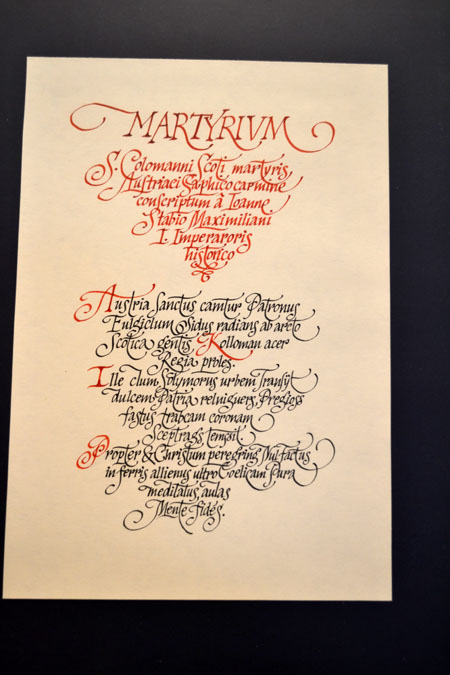 MARTYRIVM
S. Colomanni Scoti martyris
Austriaci Saphico carmine
conscriptum â Ioanne
Stabio Maximiliani
I. Imperaroris
historico
Austria Sanctus canitur Patronus
Fulgidum Sidus radians ab arcto
Scotica gentis Kolloman acer
Regia proles.
Ille dum Solymorus urbem Transÿt
dulcem Patria relniguers, Pregioss
fastus trabcam coronam
Sceptrags Tempsit
Propter & Christum peregring Sul factus
in ferris allienus ultro Coelicam Pura
meditatus, aulas
Mente fides.